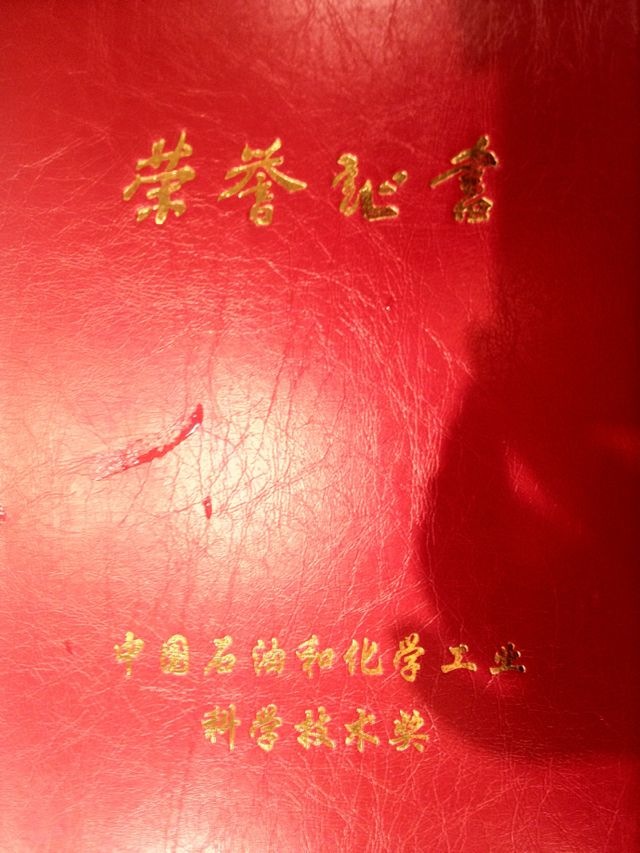 荣誉证书
中国石油和化学工业
科学技术奖